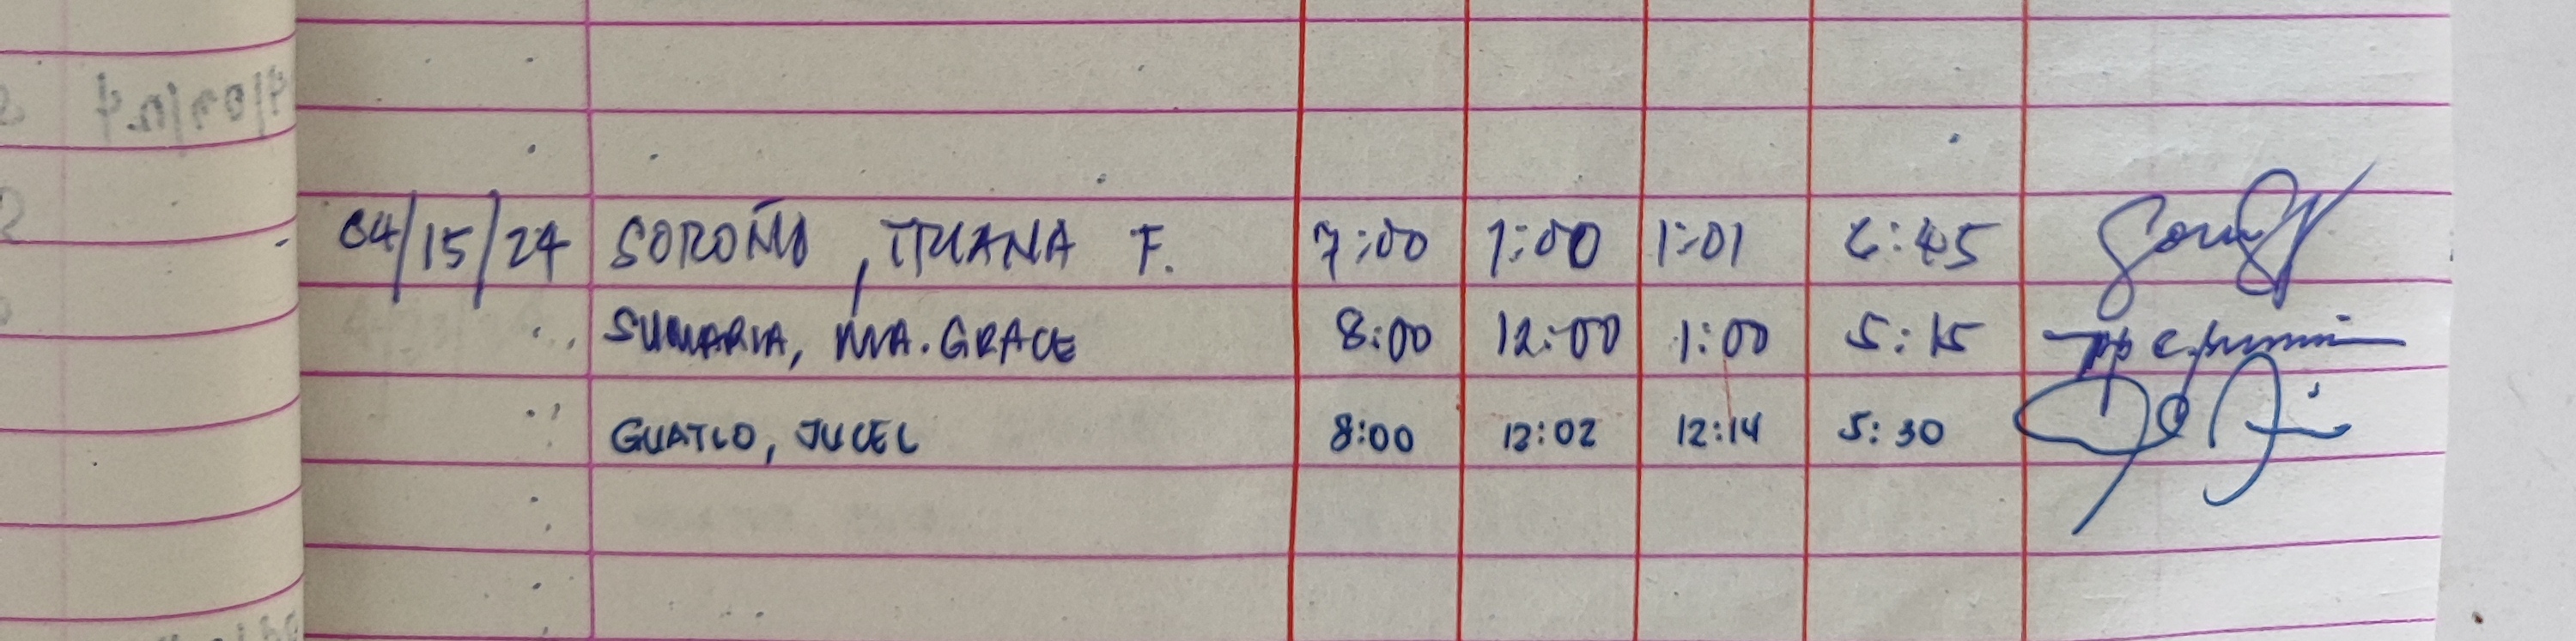 04/15/24 SOROÑO, ITHANA F. 7:00 1:00 1:01 6:45
SUMARIA, MA. GRACE 8:00 12:00 1:00 5:15
GUATLO, JUCEL 8:00 12:02 12:14 5:30